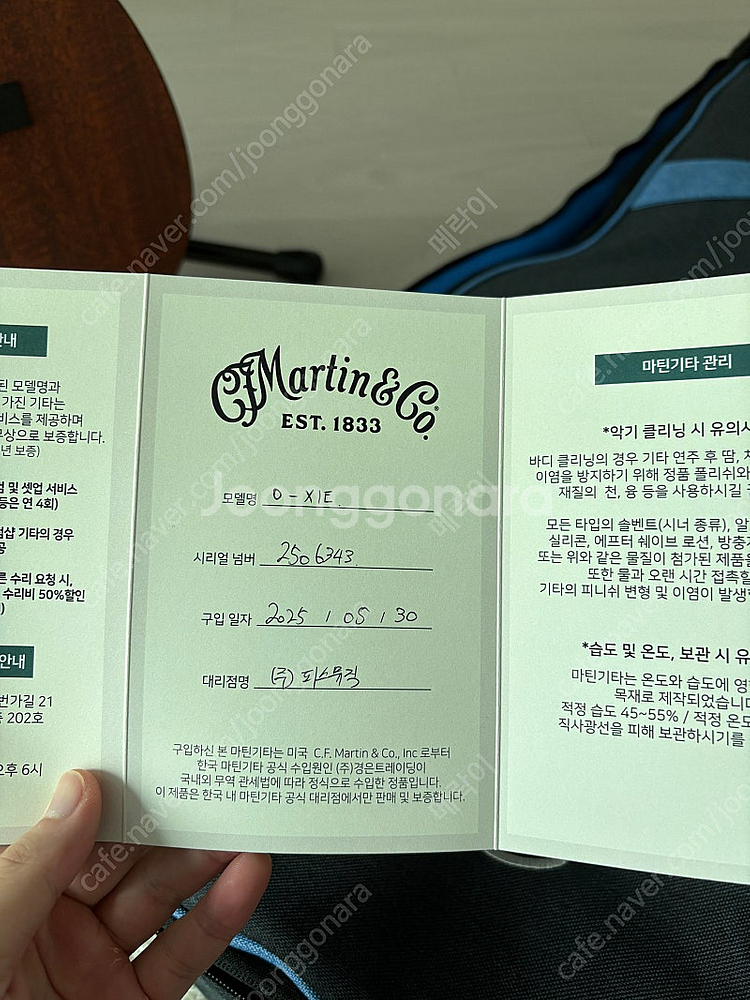 안내
된 모델명과
가진 기타는
비스를 제공하며
무상으로 보증합니다.
년 보증)
및 셋업 서비스
등은 연 4회)
샵 기타의 경우
공
른 수리 요청 시,
수리비 50%할인
안내
번가길 21
202호
오후 6시
CF Martin & Co.
EST. 1833
모델명 0-X1E
시리얼 넘버 2506343
구입 일자 2025 / 05 / 30
대리점명 (주)피스뮤직
구입하신 본 마틴기타는 미국 C.F. Martin & Co., Inc 로부터
한국 마틴기타 공식 수입원인 (주)경은트레이딩이
국내외 무역 관세법에 따라 정식으로 수입한 정품입니다.
이 제품은 한국 내 마틴기타 공식 대리점에서만 판매 및 보증합니다.
마틴기타 관리
*악기 클리닝 시 유의사
바디 클리닝의 경우 기타 연주 후 땀,
이염을 방지하기 위해 정품 폴리쉬와
재질의 천, 융 등을 사용하시길
모든 타입의 솔벤트(시너 종류), 알
실리콘, 에프터 쉐이브 로션, 방충
또는 위와 같은 물질이 첨가된 제품을
또한 물과 오랜 시간 접촉할
기타의 피니쉬 변형 및 이염이 발생
*습도 및 온도, 보관 시 유
마틴기타는 온도와 습도에 영
목재로 제작되었습니다
적정 습도 45~55% / 적정 온도
직사광선을 피해 보관하시기를
Joonggonara
cafe.naver.com/joonggonara
메락이